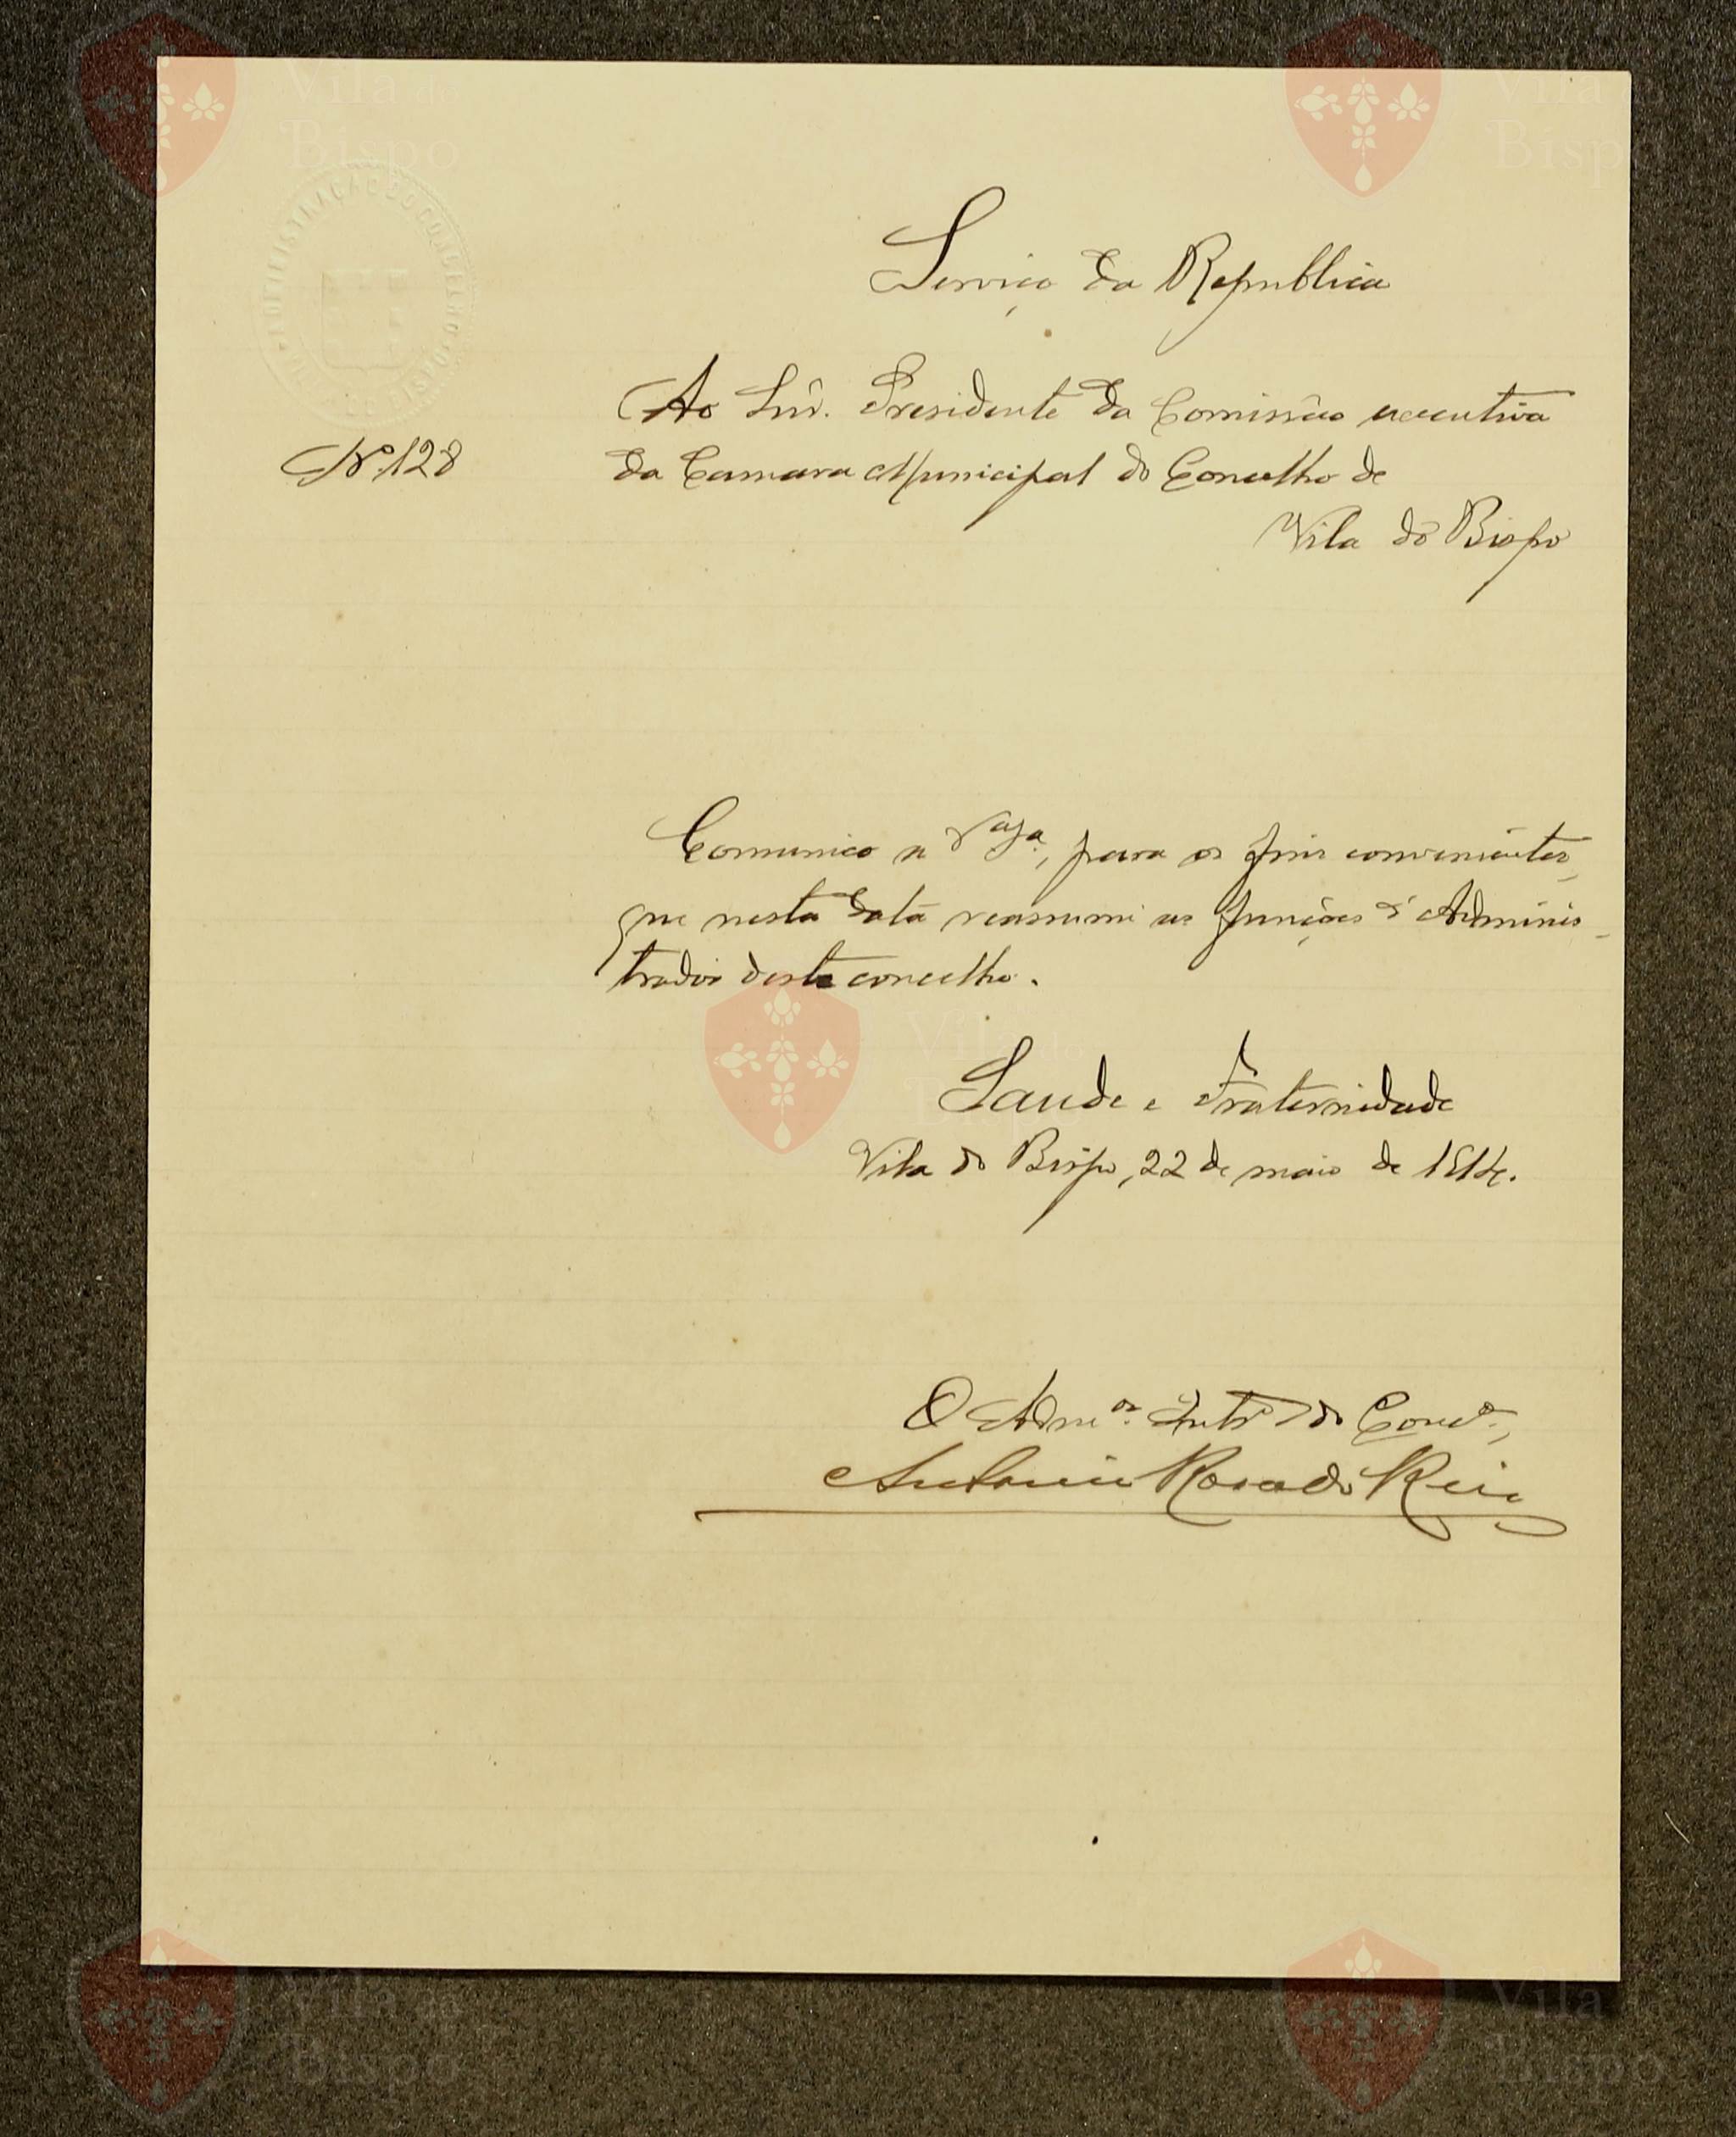 Vila do
Bispo
Vila do
Bispo
ADMINISTRAÇÃO DO CONCELHO
Serviço da Republica
Ao Snr. Presidente da Comissão executiva
Nº 128
da Camara Municipal do Concelho de
Vila do Bispo
Comunico a para os fins convenientes,
que nesta data reassumi as funções d'Adminis-
trador deste concelho.
Vila do
Bispo
Saude e Fraternidade
Vila do Bispo, 22 de maio de 1914.
O Admor. Intº do Concº,
Antonio Rosado Reis
Vila do
Bispo
Vila do
Bispo